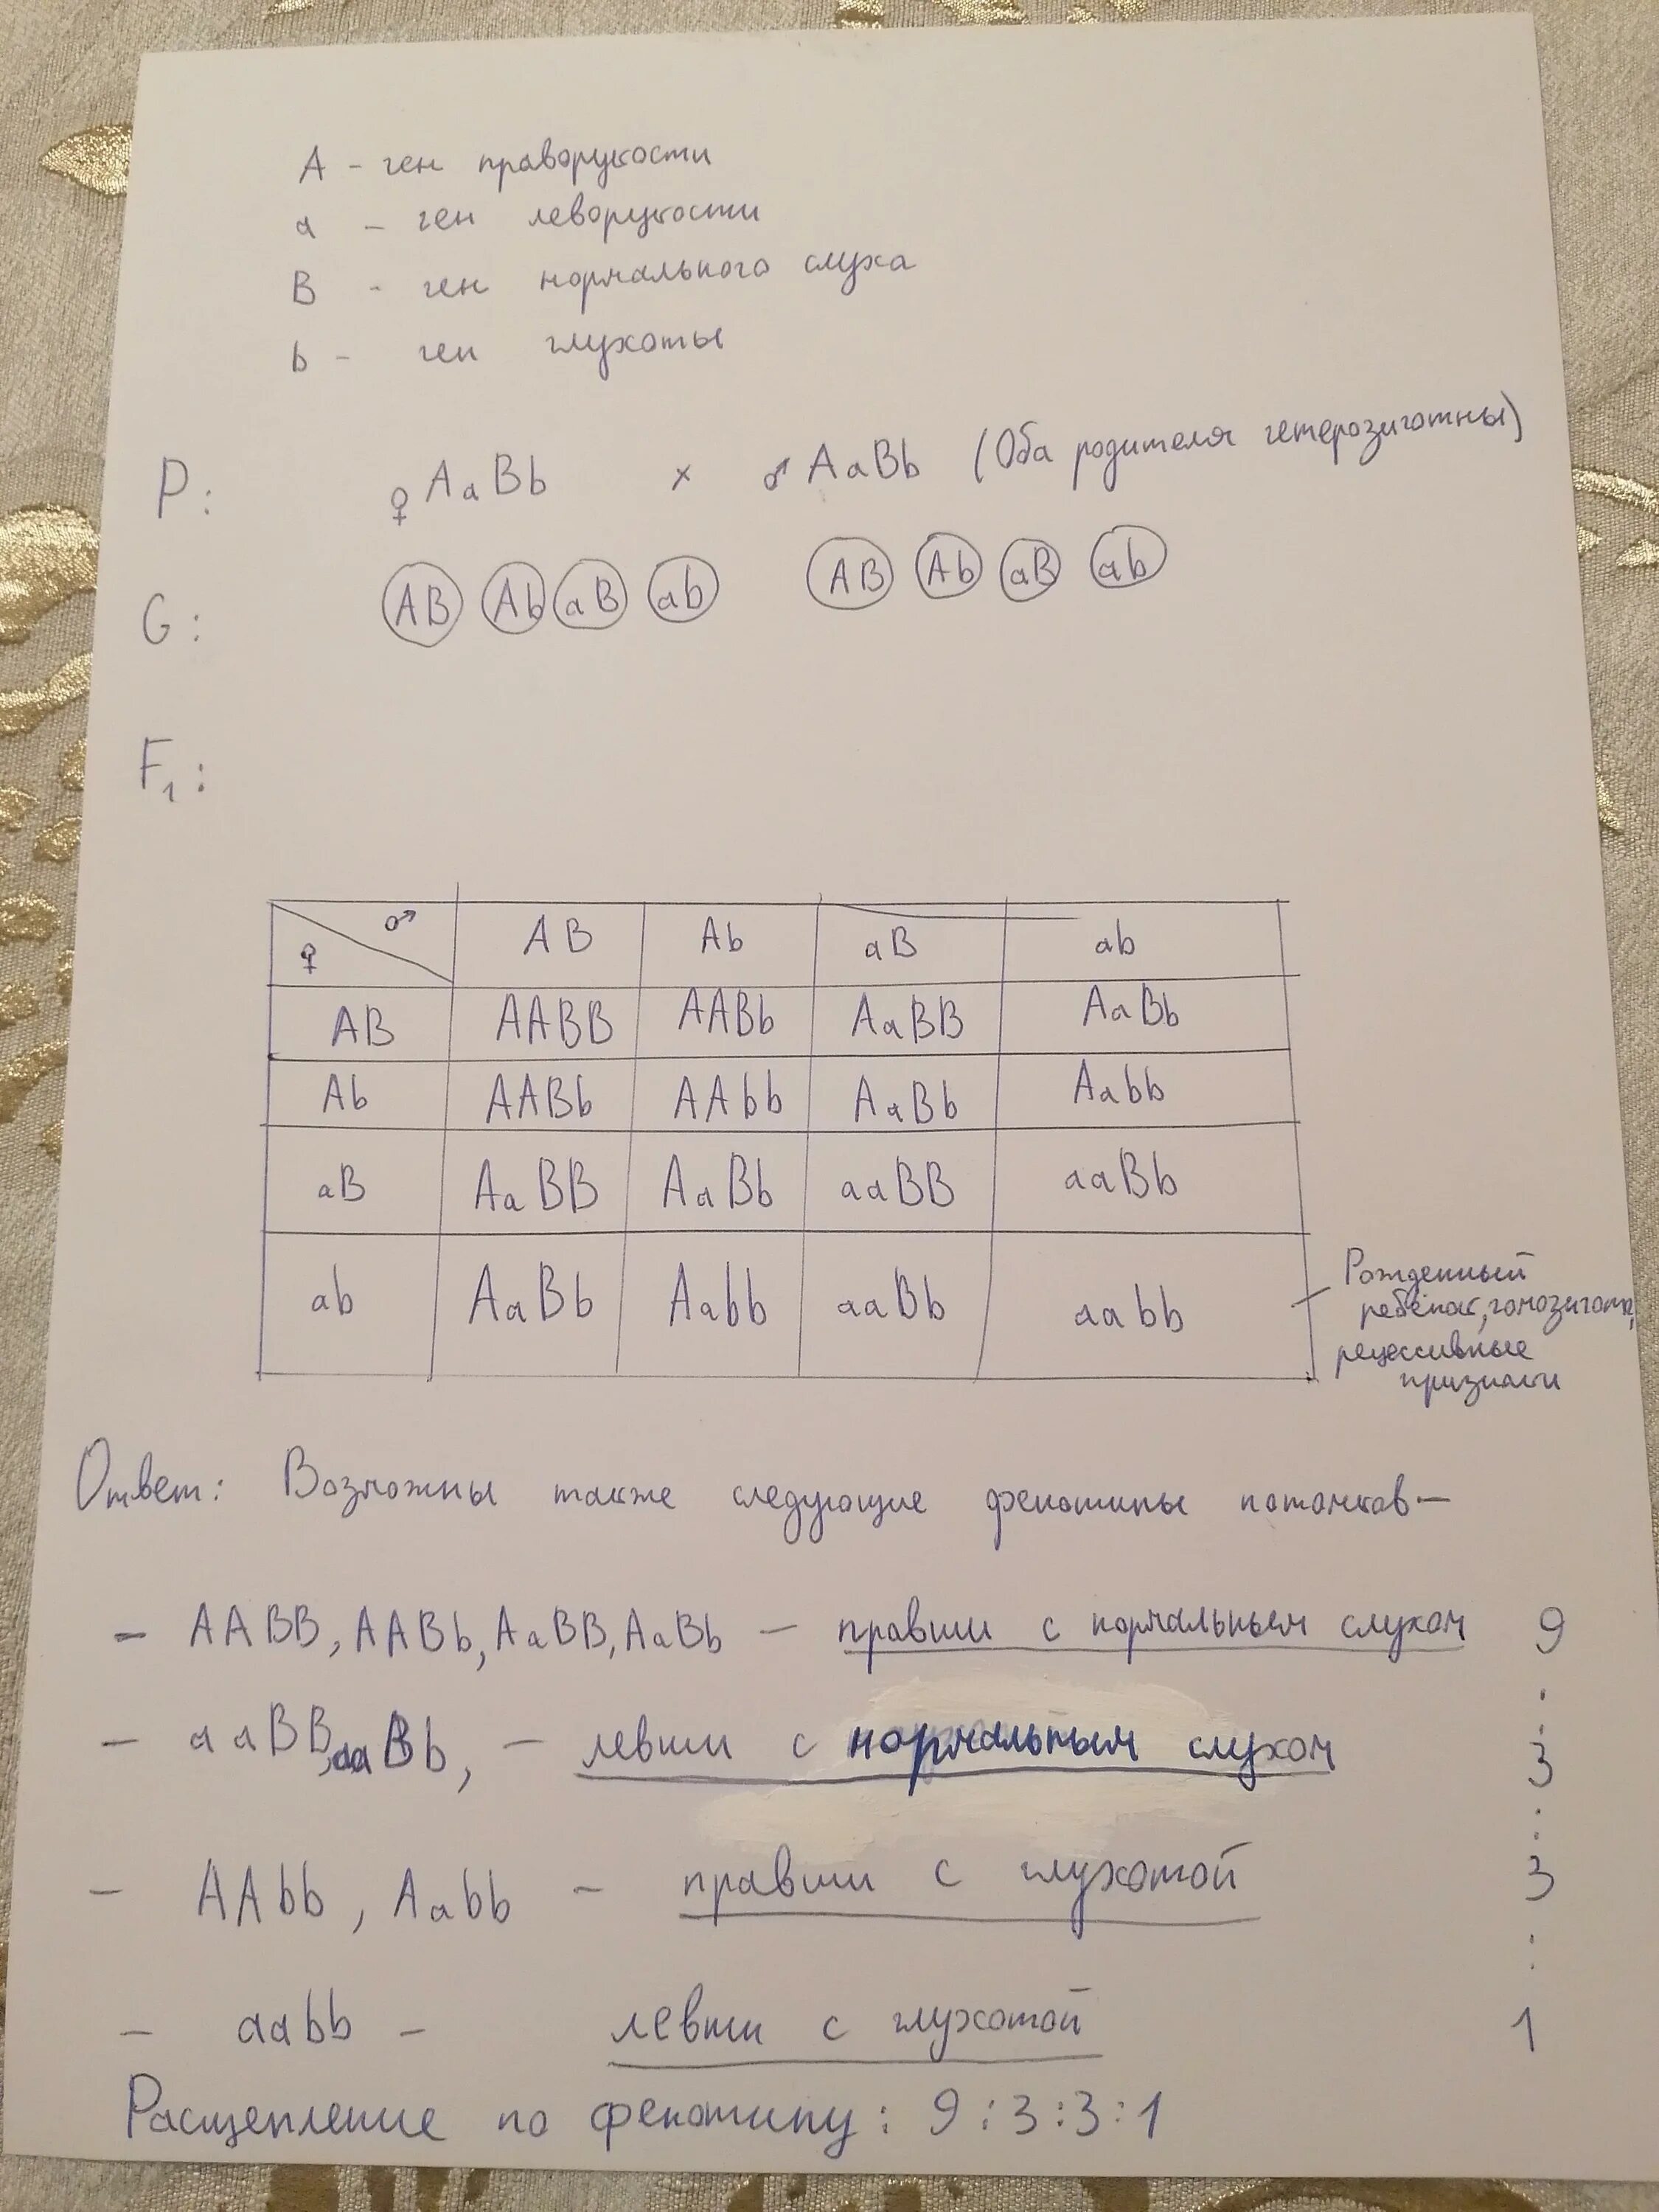 A - ген праворукости
a - ген леворукости
B - ген нормального слуха
b - ген глухоты
P: ♀ AaBb x ♂ AaBb (Оба родителя гетерозиготны)
G: AB Ab aB ab AB Ab aB ab
F1:
♀ ♂ AB Ab aB ab
AB AABB AABb AaBB AaBb
Ab AABb AAbb AaBb Aabb
aB AaBB AaBb aaBB aaBb
ab AaBb Aabb aaBb aabb
Рожденный
ребёнок, гомозигота,
рецессивные
признаки
Ответ: Возможны также следующие фенотипы потомков-
- AABB, AABb, AaBB, AaBb - правши с нормальным слухом 9
:
- aaBB, aaBb, - левши с нормальным слухом 3
:
- AAbb, Aabb - правши с глухотой 3
:
- aabb - левши с глухотой 1
Расщепление по фенотипу: 9:3:3:1